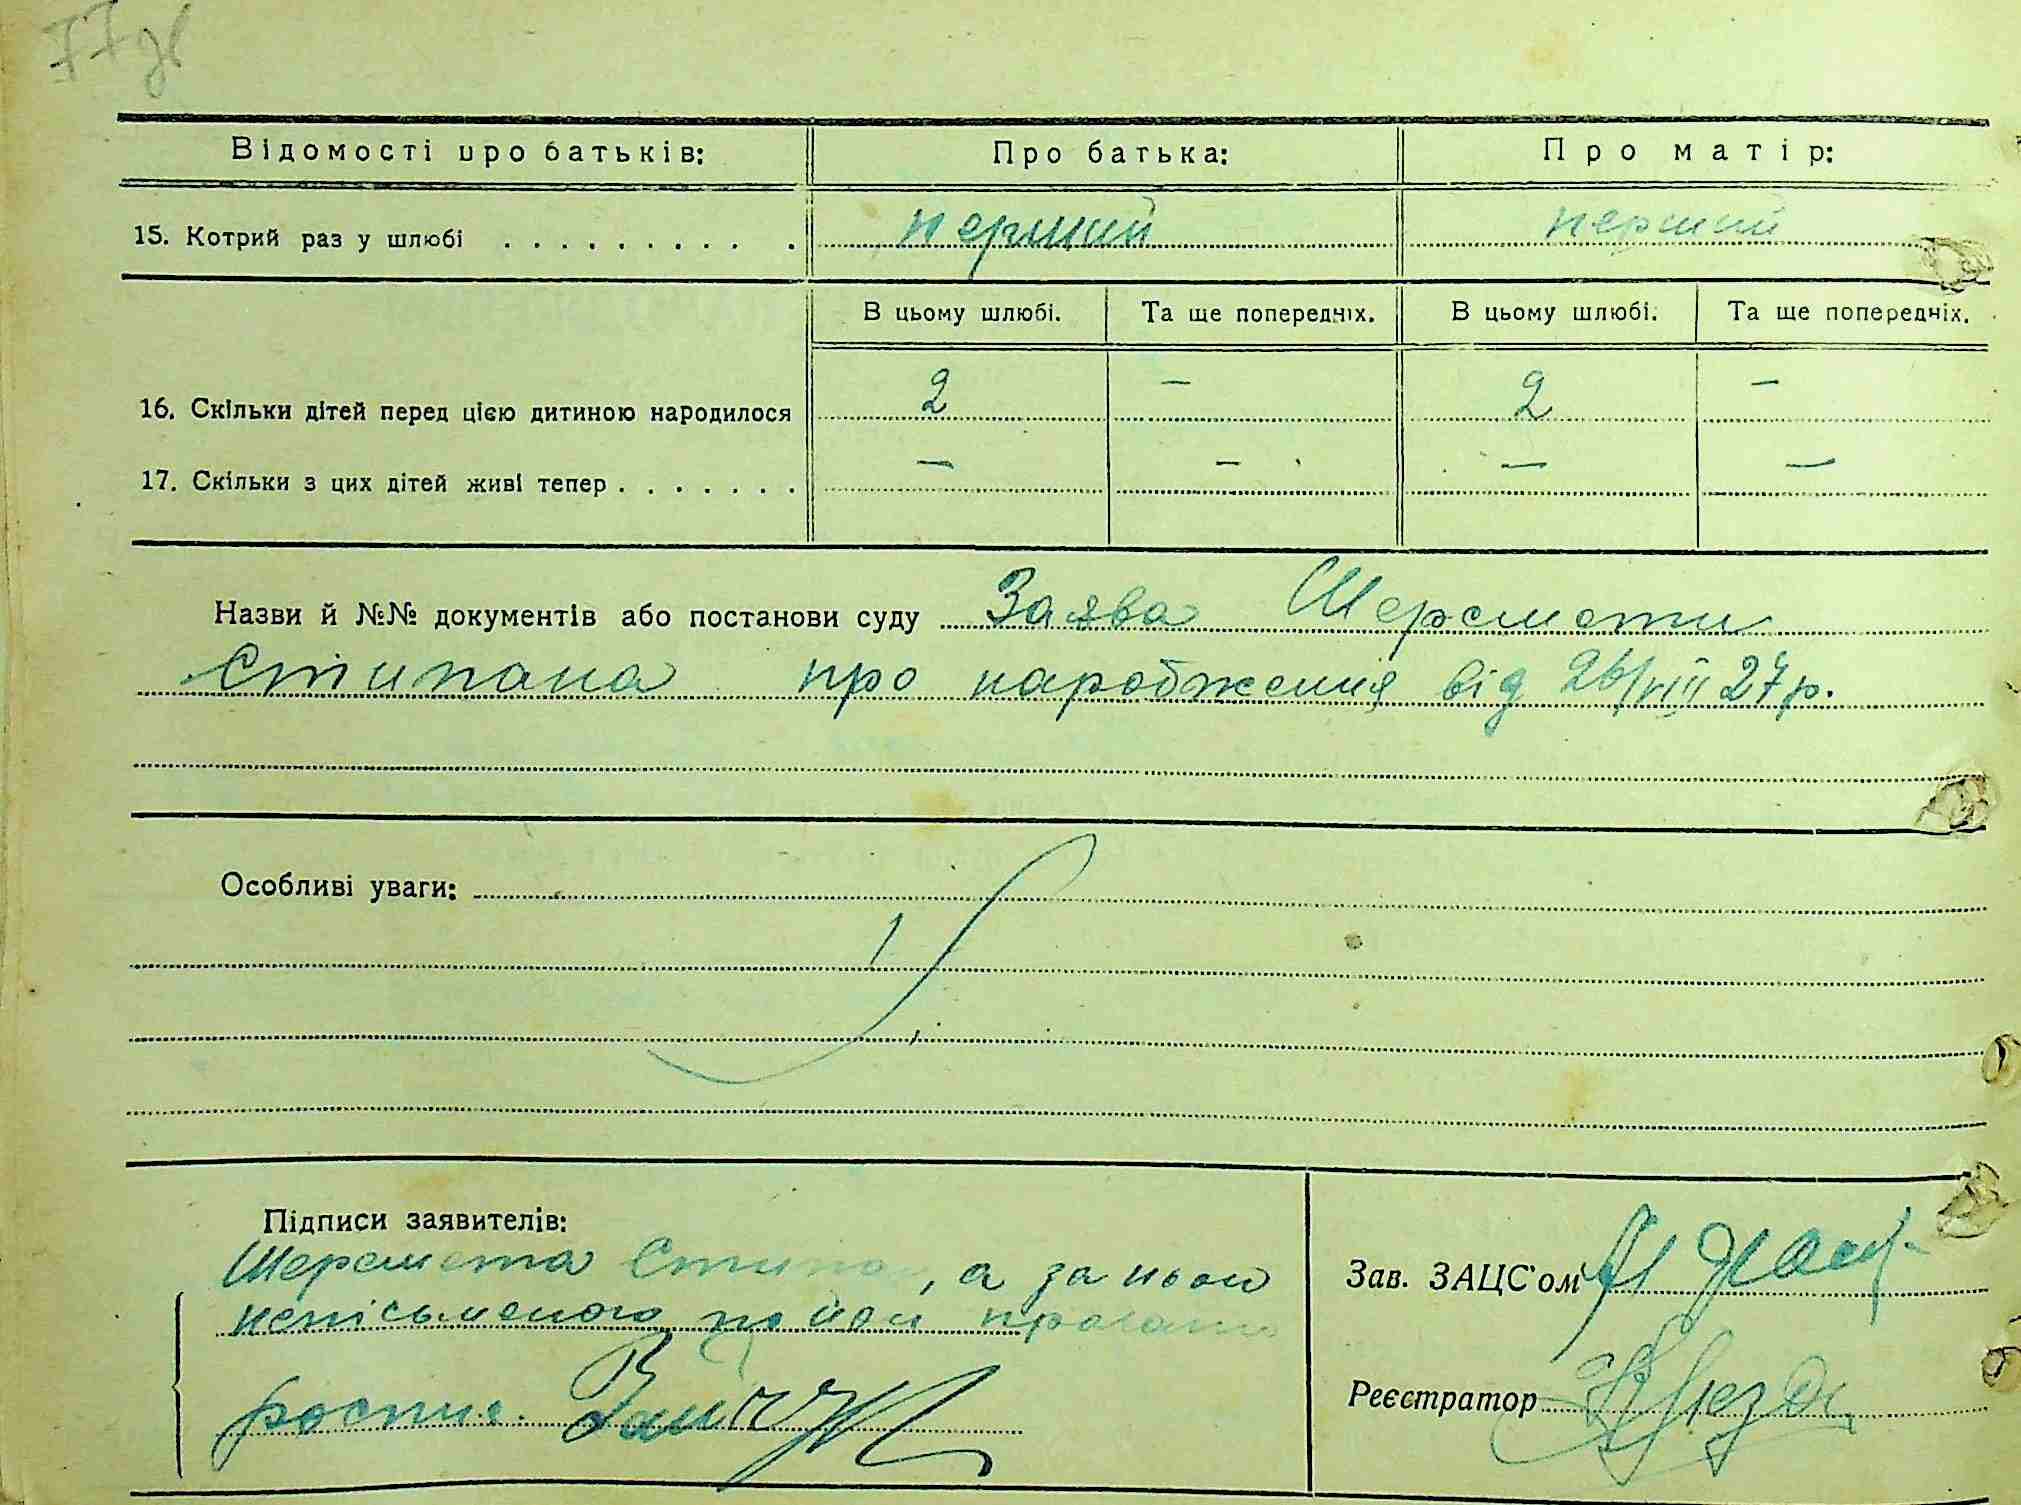 Відомості про батьків: Про батька: Про матір:
15. Котрий раз у шлюбі . . . . . . . . . . перший перший
В цьому шлюбі. Та ще попередніх. В цьому шлюбі. Та ще попередніх.
16. Скільки дітей перед цією дитиною народилося 2 — 2 —
17. Скільки з цих дітей живі тепер . . . . . . . — — — —
Назви й №№ документів або постанови суду Заява Шеремети
Стипана про народження від 26/VIII 27 р.
Особливі уваги:
Підписи заявителів:
Шеремета а за нього
неписьменого по його
роспис.
Зав. ЗАЦС'ом
Реєстратор